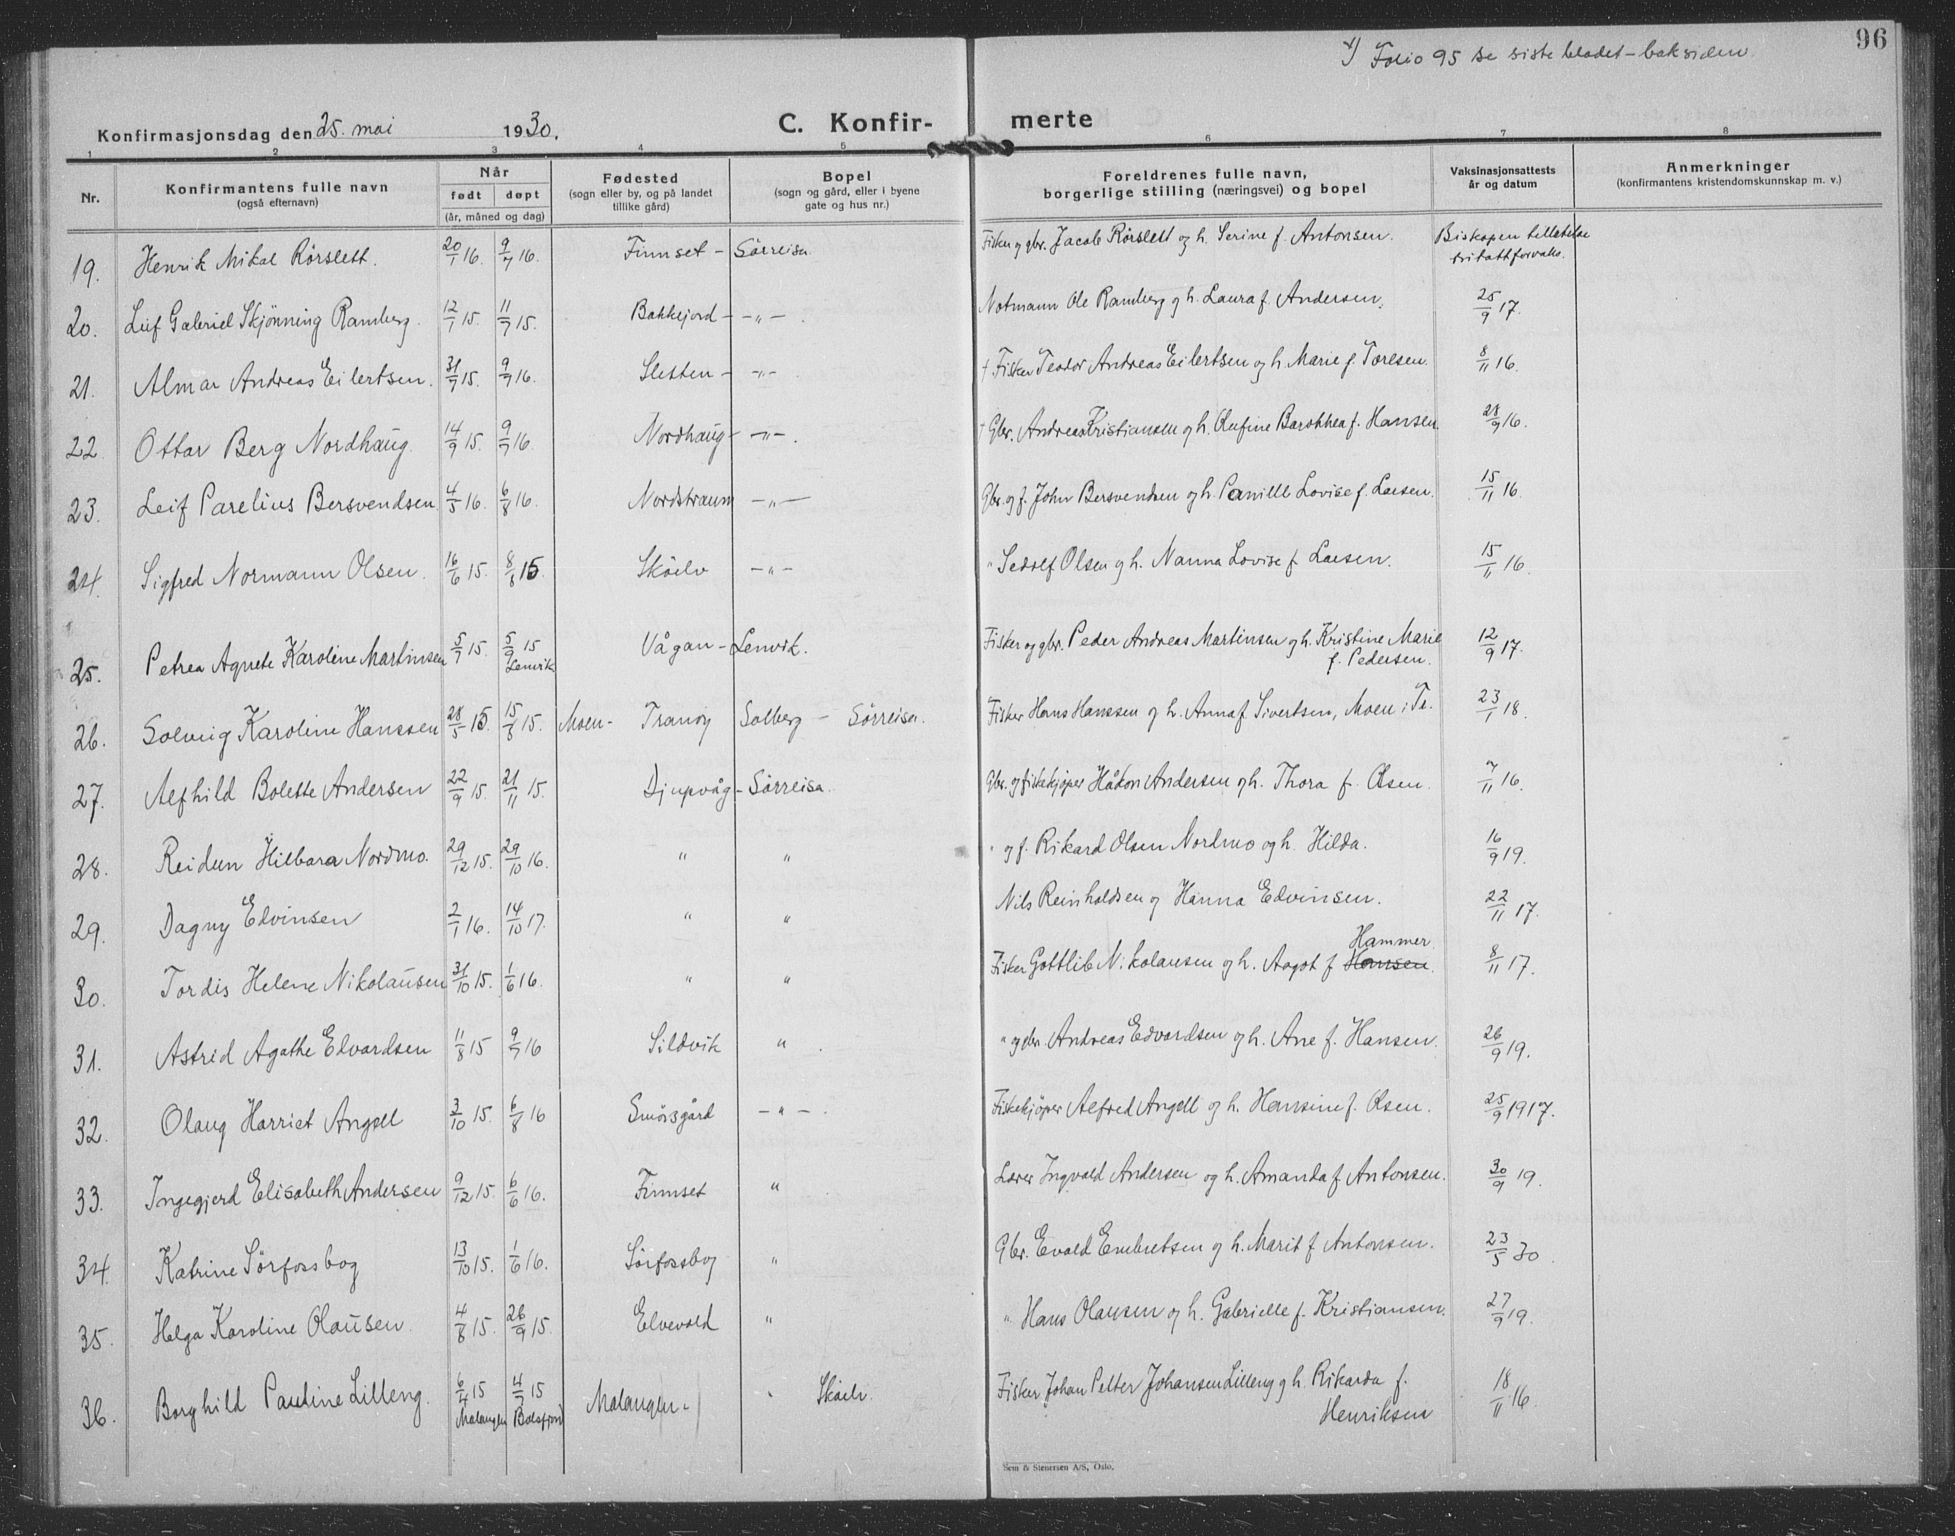 96
x) Folio 95 se siste bladet - baksiden
Konfirmasjonsdag den 25. mai 1930.
C. Konfir- merte
1 2 3 4 5 6 7 8
Nr.
Konfirmantens fulle navn
(også efternavn)
Når
født døpt
(år, måned og dag)
Fødested
(sogn eller by, og på landet
tillike gård)
Bopel
(sogn og gård, eller i byene
gate og hus nr.)
Foreldrenes fulle navn,
borgerlige stilling (næringsvei) og bopel
Vaksinasjonsattests
år og datum
Anmerkninger
(konfirmantens kristendomskunnskap m. v.)
19. Henrik Mikal Rørslett. 20/1 16. 9/7 16. Finnset - Sørreisa Fisker og gbr. Jacob Rørslett og h. Serine f. Antonsen. Biskopen tillatelse
fritatt for vaks.
20. Leif Gabriel Skjønning Ramberg. 12/1 15. 11/7 15. Bakkejord - -"- . Notmann Ole Ramberg og h. Laura f. Andersen. 25/9 17.
21. Almar Andreas Eilertsen. 31/7 15. 9/7 16. Sletten - -"- † Fisker Teodor Andreas Eilertsen og h. Marie f. Torlsen. 8/11 16.
22. Ottar Berg Nordhaug. 14/9 15. 9/7 16. Nordhaug - -"- . † Gbr. Andreas Kristiansen og h. Olufine Barothea f. Hansen. 28/9 16.
23. Leif Parelius Bersvendsen 4/5 16. 6/8 16. Nordstraum -"- Gbr. og f. John Bersvendsen og h. Pernille Lovise f. Larsen. 15/11 16.
24. Sigfred Normann Olsen. 16/6 15. 8/8 15 Skøelv -"- " Sedolf Olsen og h. Nanna Lovise f. Larsen. 15/11 16.
25. Petrea Agnete Karoline Martinsen 5/7 15. 5/9 15 Lenvik Vågan - Lenvik. Fisker og gbr. Peder Andreas Martinsen og h. Kristine Marie
f. Pedersen. 12/9 17.
26. Solveig Karoline Hanssen 28/5 15 15/8 15. Moen - Tranøy Solberg - Sørreisa. Fisker Hans Hanssen og h. Anna f. Sivertsen, Moen i Tr. 23/1 18.
27. Alfhild Bolette Andersen 22/9 15. 21/11 15. Djupvåg - Sørreisa. Gbr. og fiskekjøper Håkon Andersen og h. Thora f. Olsen. 7/11 16.
28. Reidun Hilbara Nordmo. 29/12 15. 29/10 16. " " " og f. Rikard Olsen Nordmo og h. Hilda. 16/9 19.
29. Dagny Edvinsen 2/1 16. 14/10 17. " " Nils Reinholdsen og Hanna Edvinsen. 22/11 17.
30. Tordis Helene Nikolausen 31/10 15. 1/6 16. " " Fisker Gottlib Nikolausen og h. Aagot f. Hansen. Hammer. 8/11 17.
31. Astrid Agathe Edvardsen 11/8 15 9/7 16 Sildvik " . " og gbr. Andreas Edvardsen og h. Ane f. Hansen. 26/9 19.
32. Olaug Harriet Angell 3/10 15. 6/8 16 Smørsgård -"- . Fiskekjøper Alfred Angell og h. Hansine f. Olsen. 25/9 1917.
33. Ingegjerd Elisabeth Andersen 9/12 15. 6/6 16. Finnset " Lærer Ingvald Andersen og h. Amanda f. Antonsen. 30/9 19.
34. Katrine Sørfossbog 13/10 15. 1/6 16. Sørfossbog " Gbr. Evald Embretsen og h. Marit f. Antonsen. 23/5 30
35. Helga Karoline Olausen. 4/8 15. 26/9 15. Elvevold " " Hans Olausen og h. Gabrielle f. Kristiansen. 27/9 19.
36. Borghild Pauline Lilleng. 6/4 15 Malangen 4/7 15 Balsfjord Malangen " Skøelv. Fisker Johan Petter Johansen Lilleng og h. Rikarda f.
Henriksen 18/11 16.
Sem & Stenersen A/S, Oslo.